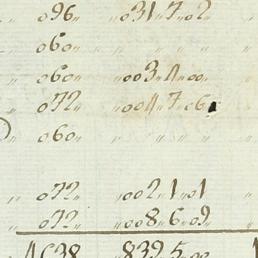 〃 096〃 〃0317〃02
〃 060〃 〃 〃 〃
〃 060〃 〃003〃4〃00〃
〃 072〃 〃004〃7〃06
060〃 〃 〃 〃 〃
〃 072〃 〃002〃1〃01
〃 072〃 〃008〃6〃09
4638 8325〃00 1